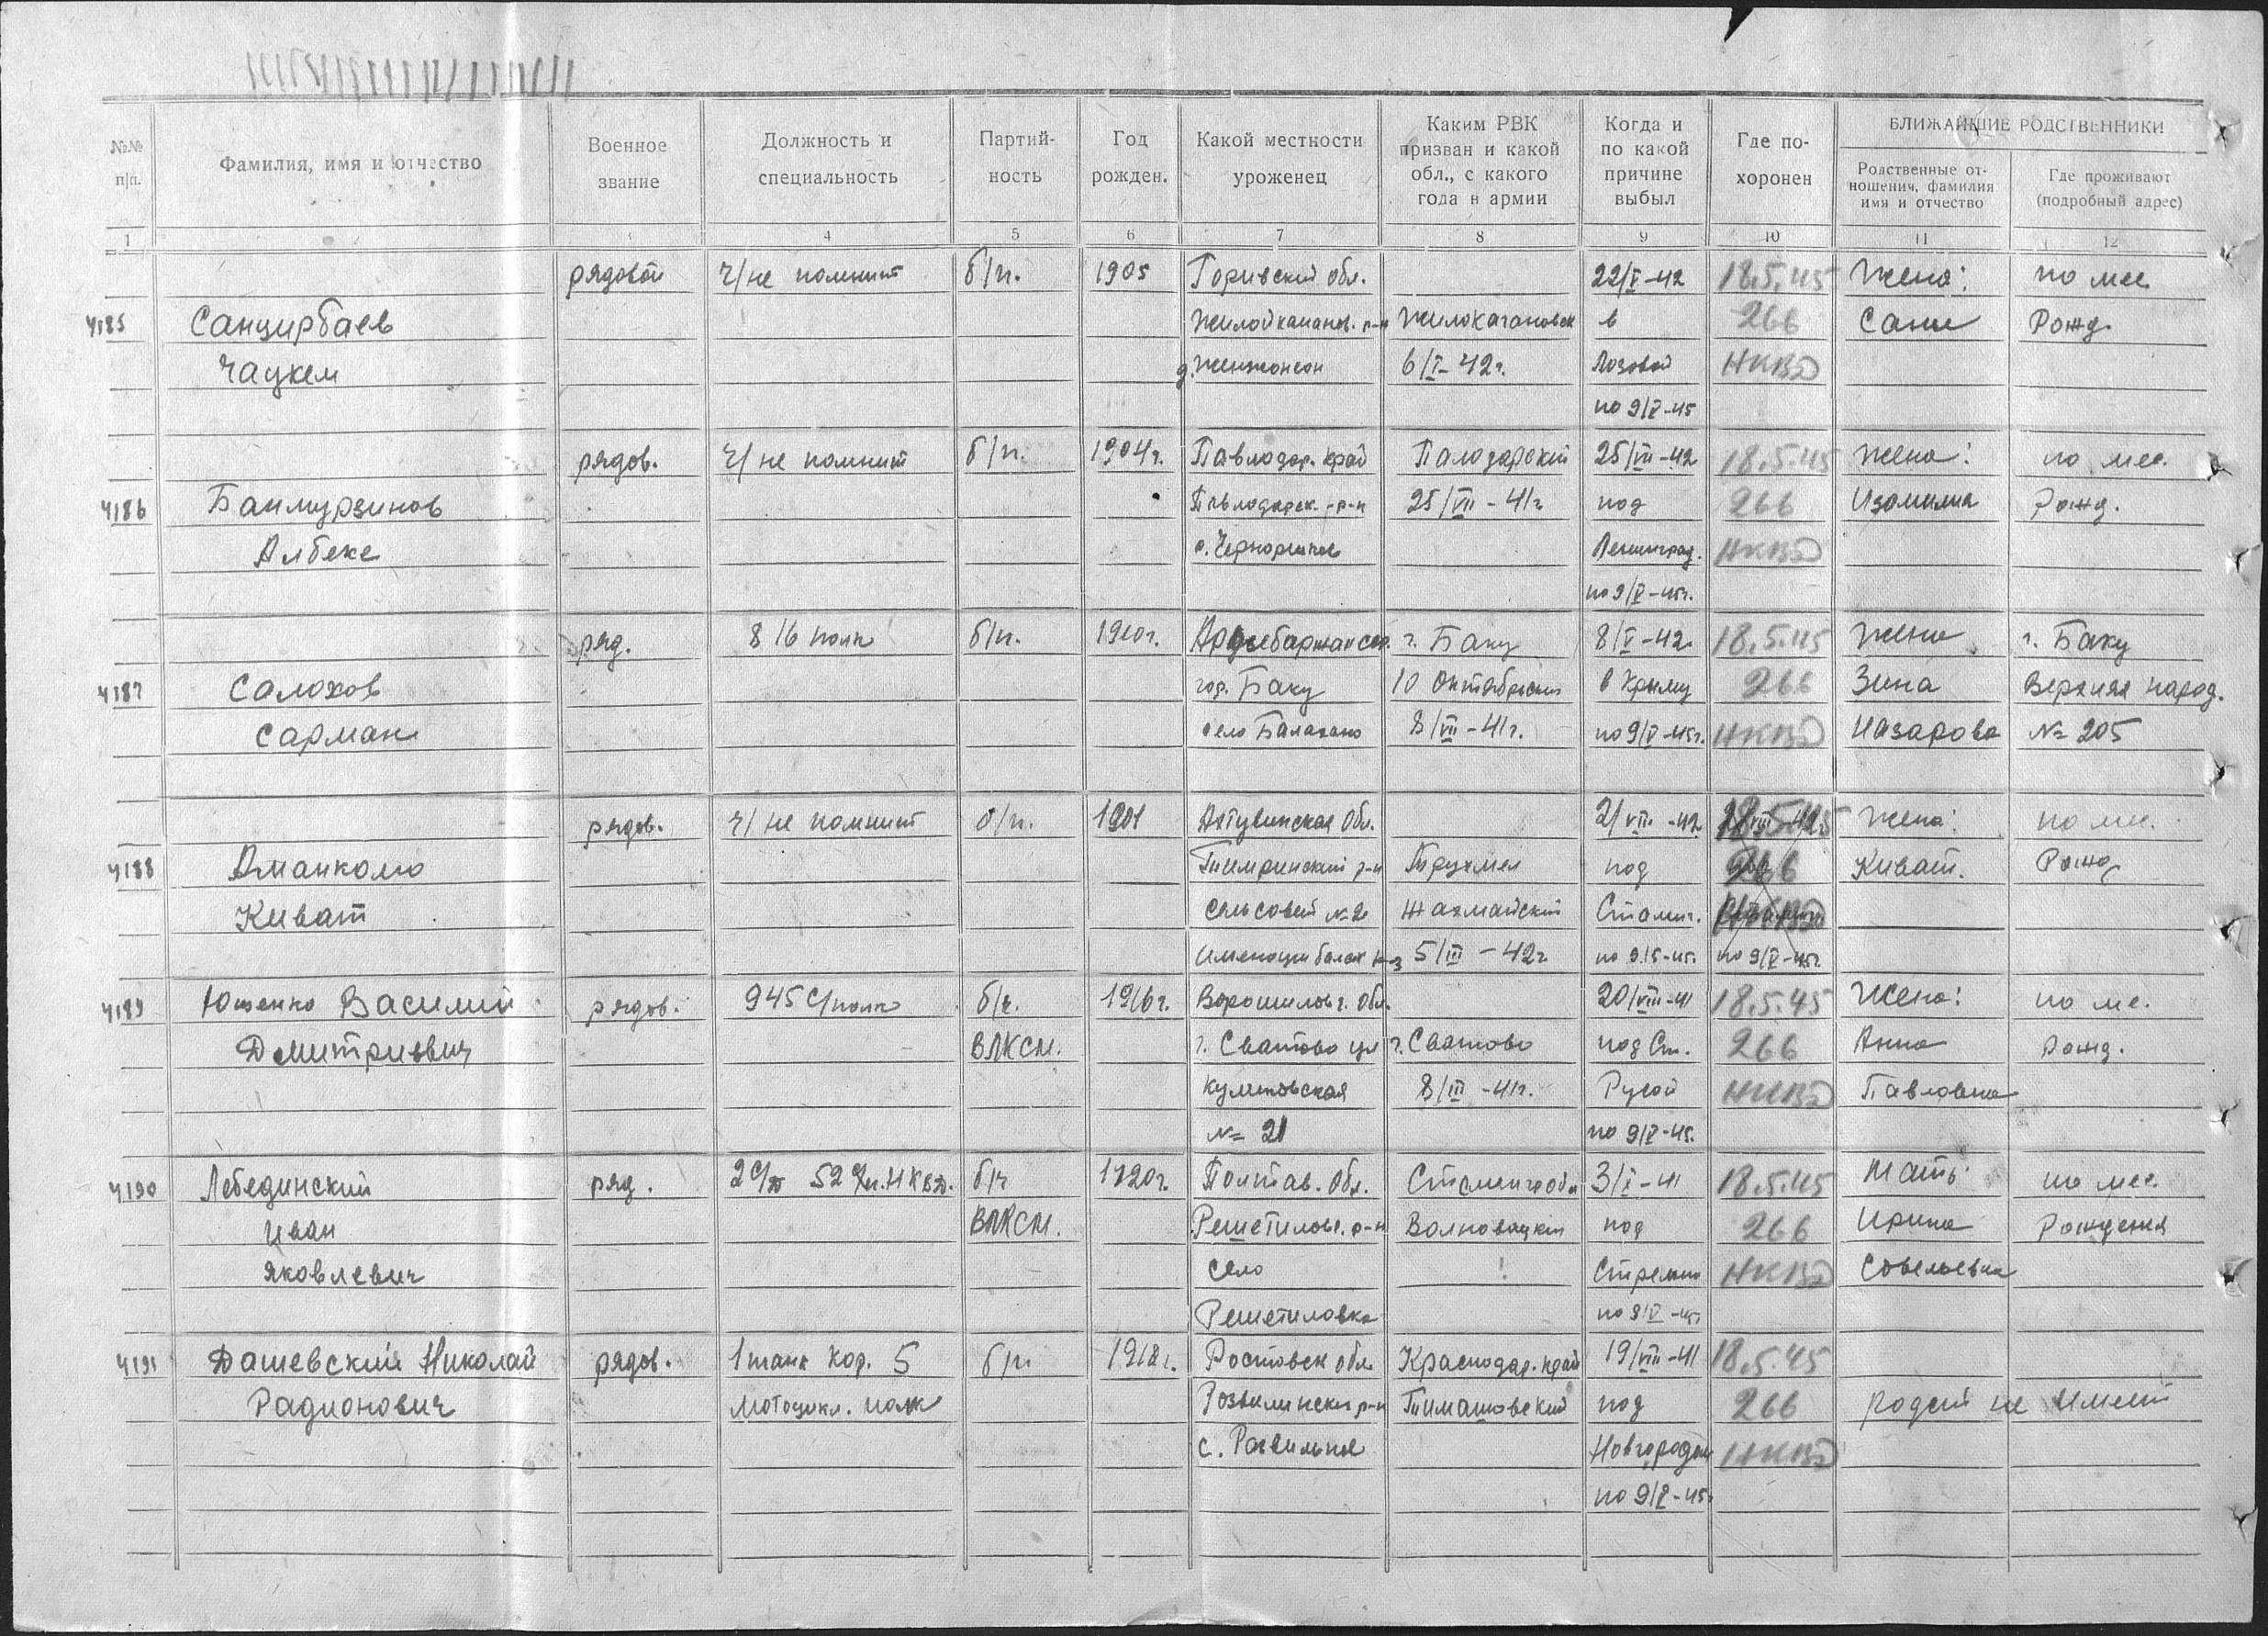 №№ п/п.
Фамилия, имя и отчество
Военное звание
Должность и специальность
Партий-ность
Год рожден.
Какой местности уроженец
Каким РВК призван и какой обл., с какого года в армии
Когда и по какой причине выбыл
Где по-хоронен
БЛИЖАЙШИЕ РОДСТВЕННИКИ
Родственные от-ношения, фамилия имя и отчество
Где проживают (подробный адрес)
1 3 4 5 6 7 8 9 10 11 12
рядовой ч/не помнит б/п. 1905 Горивский обл. 22/V-42 18.5.45 Жена: по мес.
4185 Санцирбаев в 266 Сани Рожд.
6/I-42г. Лозовой НКВД
по 9/V-45
рядов. ч/не помнит б/п. 1904г. Павлодар. край Палодарский 25/VII-42 18.5.45 Жена: по мес.
4186 Баимурзинов Павлодарск. р-н 25/VII-41г под 266 Рожд.
Албеке Ленинград. НКВД
по 9/V-45г.
ряд. 816 полк б/п. 1910г. г. Баку 8/V-42 18.5.45 Жена г. Баку
4187 Салохов гор. Баку 10 Октябрьский в Крыму 266 Зина Верхняя нагор.
Сарман село Балахано 8/VII-41г. по 9/V-45г. НКВД Назарова № 205
рядов. ч/не помнит б/п. 1901 Актувинская обл. 2/VIII-42 18.5.45 Жена: по мес.
4188 Аманкало Тимринский р-н под 266 Киват. Рожд
Киват сельсовет №2 Сталинг. НКВД
5/III-42г по 9.15-45г. по 9/V-45г.
4189 Ющенко Василий рядов. 945 с/полк 1916г. Ворошиловг. обл. 20/VIII-41 18.5.45 Жена: по ме.
Дмитриевич ВЛКСМ. г. Сватово ул г. Сватово под Ст. 266 Анна Рожд.
Куликовская 8/III-41г. Русой НКВД Павловна
№ 21 по 9/V-45.
4190 Лебединский ряд. 1920г. Полтав. обл. 3/I-41 18.5.45 Мать: по мес.
Иван ВЛКСМ. Решетилов. р-н Волновацкий под 266 Ирина Рождения
Яковлевич село НКВД Савельевна
Решетиловка
4191 Дашевский Николай рядов. 1 танк кор. 5 б/п 1918г. Ростовск обл. Краснодар. край 19/VIII-41 18.5.45
Радионович мотоцикл. полк р-н Тимашовский под 266 родст не имеет
с. Новгородом НКВД
по 9/V-45г